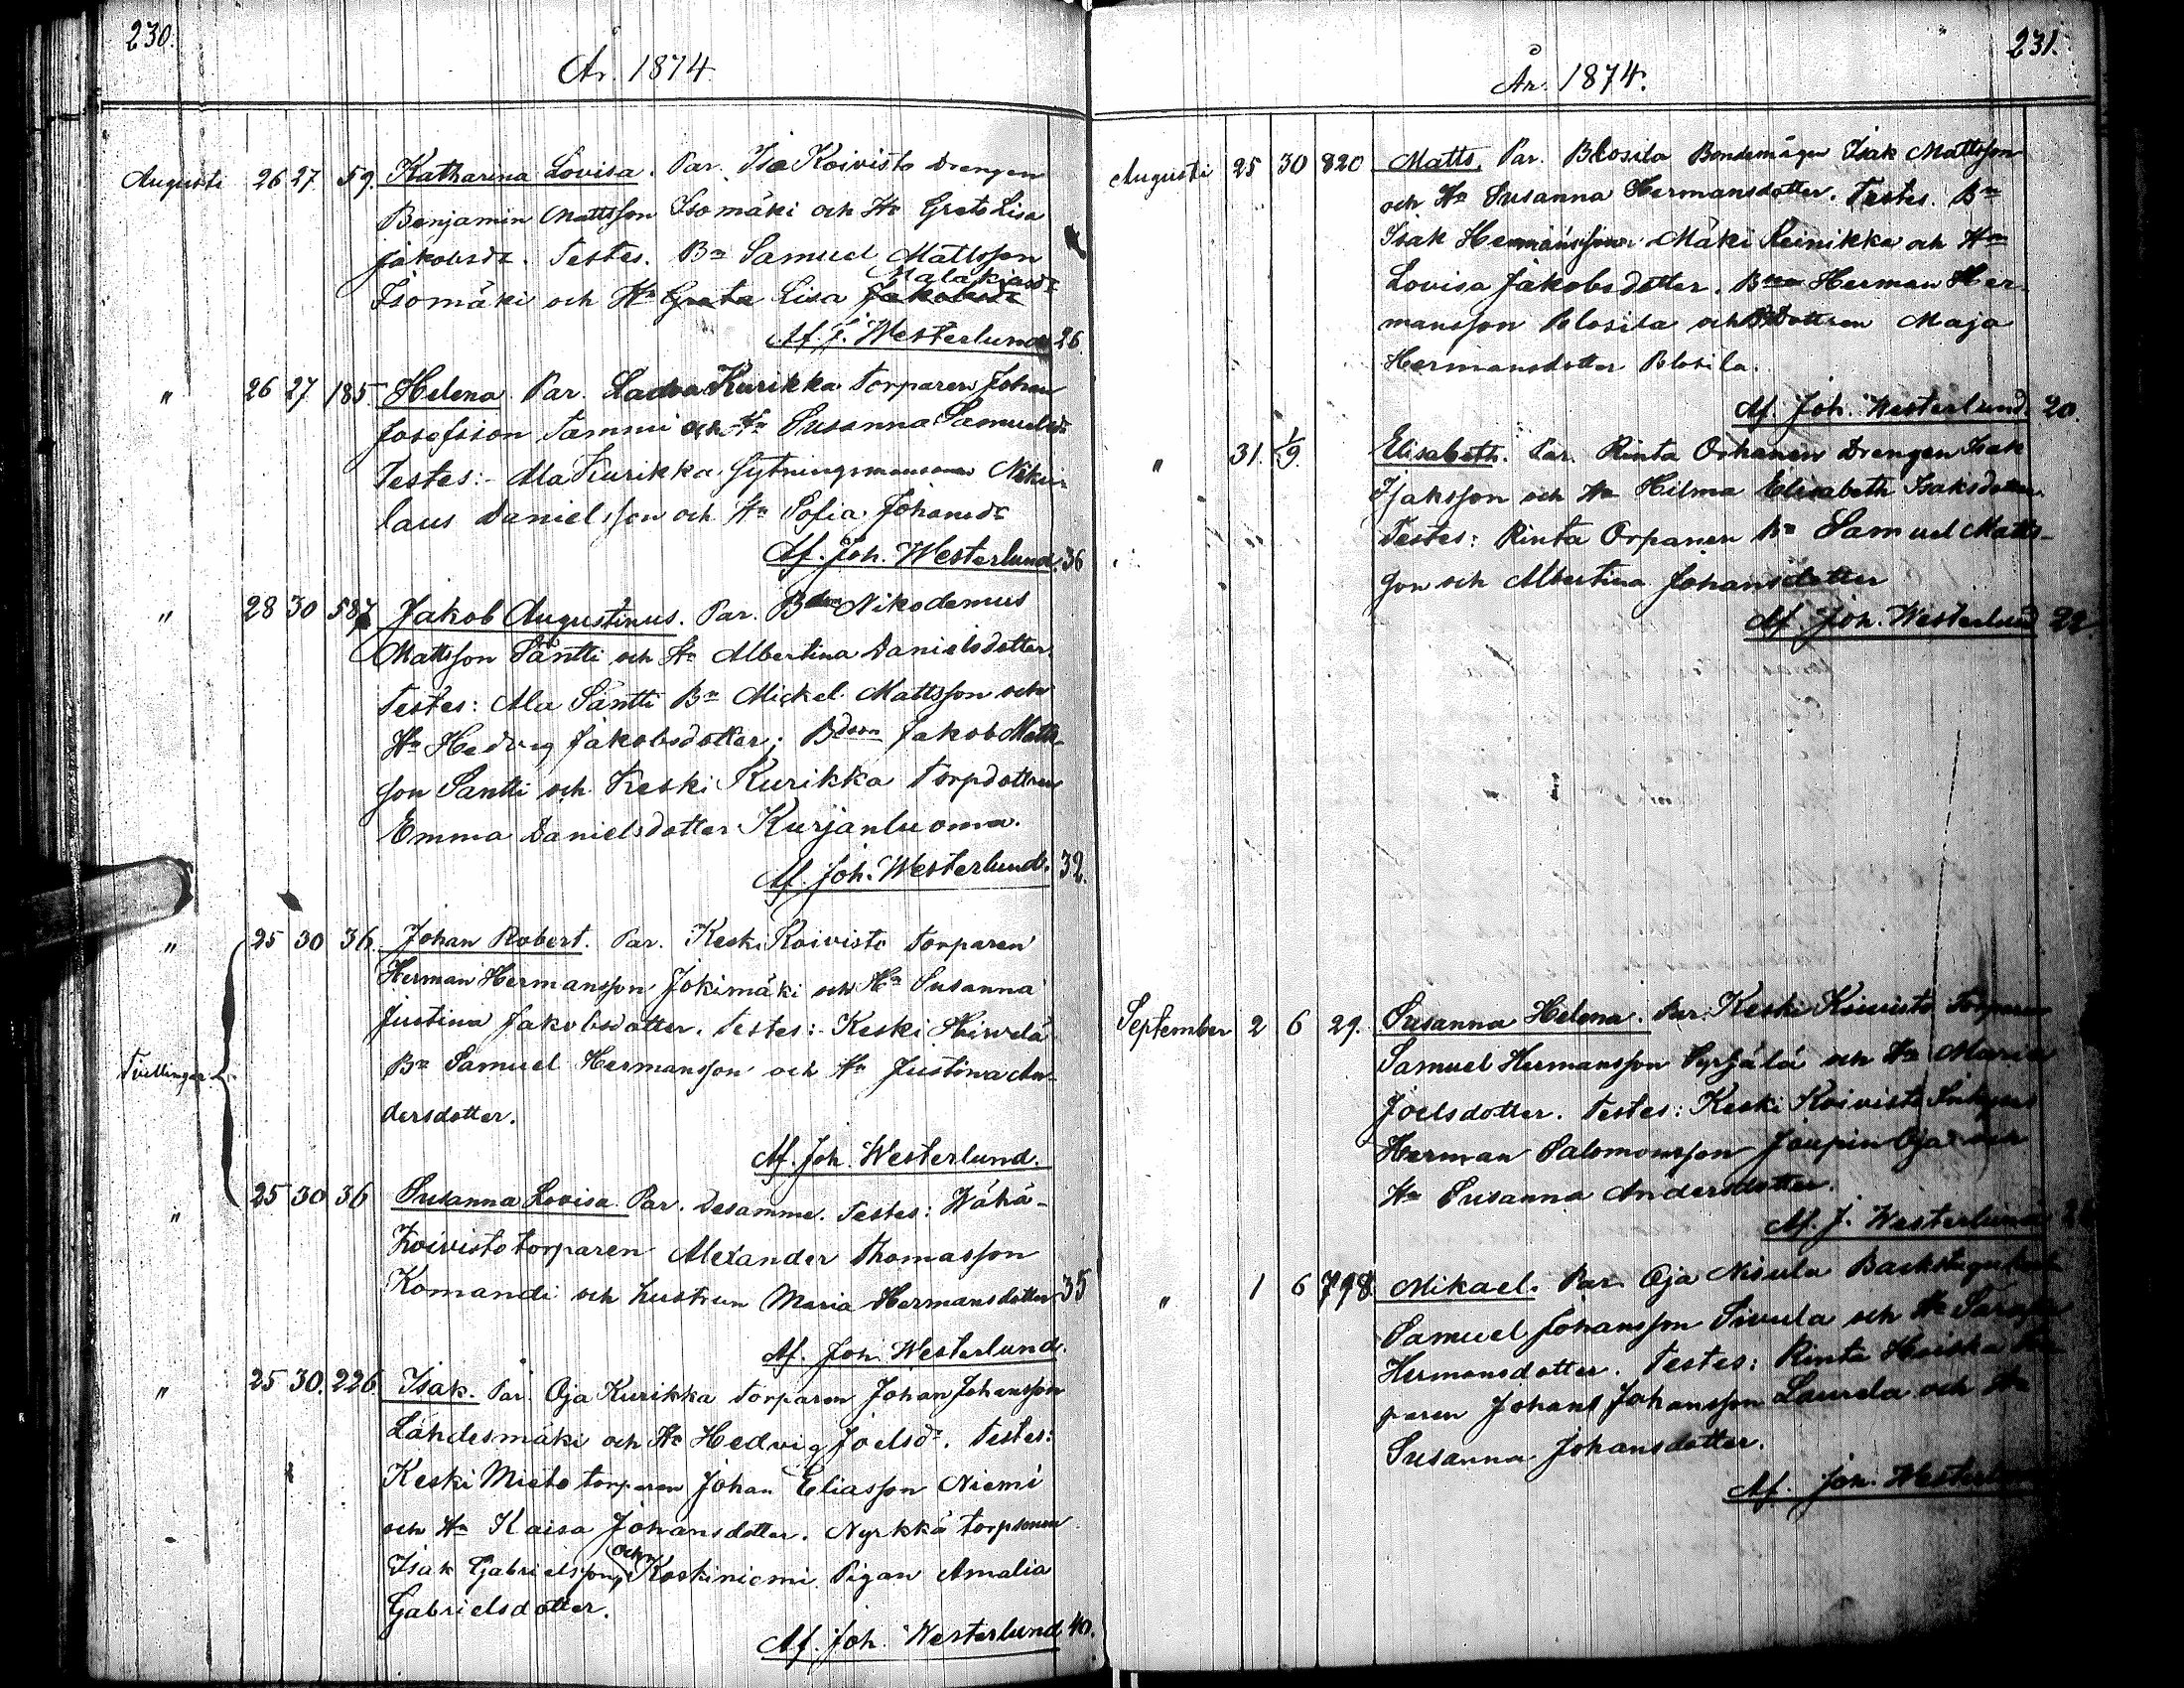 230.
År. 1874
Augusti 26 27 59. Katharina Lovisa. Par. Iso Koivisto Drengen
Benjamin Mattsson Isomäki och Hu Greta Lisa
Jakobsdr. Testes. Bn Samuel Mattsson
Malakiasdr
Isomäki och Hu Greta Lisa Jakobsdr
Af. J. Westerlund 26.
" 26 27 185 Helena. Par. Kurikka Torparen Johan
Josefsson Tammi och Hu Susanna Samuelsdr
Testes: Ala Kurikka Sytningsmannen Niko-
laus Danielsson och Hu Sofia Johansdr
Af. Joh. Westerlund. 36
" 28 30 587 Jakob Augustinus. Par. Bdson Nikodemus
Mattsson Säntti och Hu Albertina Danielsdotter.
Testes: Ala Säntti Bn Mickel Mattsson och
Hu Hedvig Jakobsdotter; Bdson Jakob Matts-
son Säntti och Keski Kurikka Torpdottren
Emma Danielsdotter Kurjanluoma.
Af. Joh. Westerlund. 32.
" 25 30 36. Johan Robert. Par. Keski Koivisto Torparen
Herman Hermansson Jokimäki och Hu Susanna
Justina Jakobsdotter. Testes: Keski Hirvelä
Bn Samuel Hermansson och Hu Justina An-
Tvillingar
dersdotter.
Af. Joh. Westerlund.
" 25 30 36 Susanna Lovisa. Par. Desamme. Testes: Wähä-
Koivisto torparen Alexander Thomasson
Komandi och hustrun Maria Hermansdotter 35
Af. Joh. Westerlund.
" 25 30. 226. Isak. Par. Oja Kurikka Torparen Johan Johansson
Lähdesmäki och Hu Hedvig Joelsdr. Testes:
Keski Mieto torparen Johan Eliasson Niemi
och Hu Kaisa Johansdotter. Nyrkkä torpsonen
och
Isak Gabrielsson, Koskiniemi Pigan Amalia
Gabrielsdotter.
Af. Joh. Westerlund 40.
231.
År. 1874.
Augusti 25 30 820 Matts. Par. Plosila Bondemågen Isak Mattsson
och Hu Susanna Hermansdotter. Testes. Bn
Isak Hermansson Mäki Reinikka och Hu
Lovisa Jakobsdotter. Herman Her-
mansson Plosila och Dottren Maja
Hermansdotter Plosila.
Af. Joh. Westerlund. 20.
" 31. 1/9. Elisabeth. Par. Rinta Orpanen Drengen Isak
Isaksson och Hu Hilma Elisabeth Isaksdotter.
Testes: Rinta Orpanen Bn Samuel Matts-
son och Albertina Johansdotter
Af. Joh. Westerlund 22.
September 2 6 29. Susanna Helena. Par. Keski Koivisto Torparen
Samuel Hermansson Syrjälä och Hu Maria
Joelsdotter. Testes: Keski Koivisto
Herman Salomonsson Joupin Oja och
Hu Susanna Andersdotter.
Af. J. Westerlund
" 1 6 798 Mikael. Par. Oja Nisula
Samuel Johansson Sivula och Hu
Hermansdotter. Testes: Rinta Heiska
paren Johan Johansson Laurela och Hu
Susanna Johansdotter.
Af. Joh. Westerlund